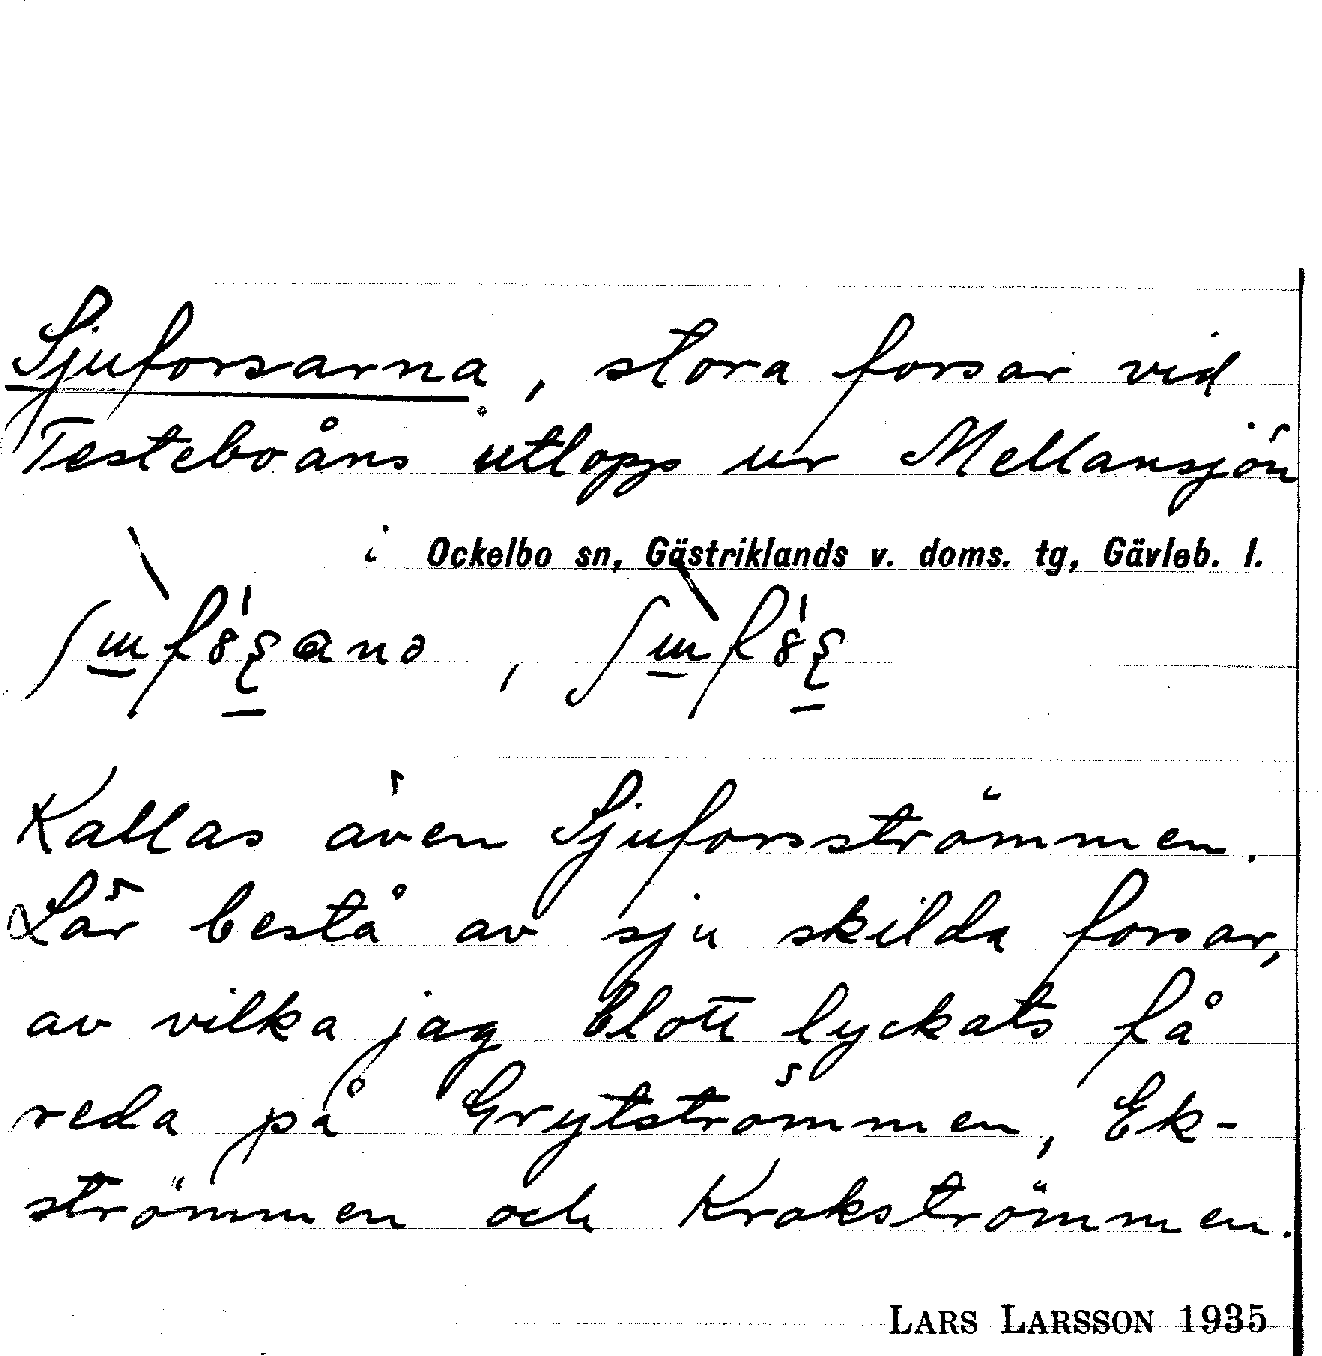 Sjuforsarna, stora forsar vid
Testeboåns utlopp ur Mellansjön
i Ockelbo sn, Gästriklands v. doms. tg, Gävleb. l.
Kallas även Sjuforsströmmen.
Lär bestå av sju skilda forsar,
av vilka jag blott lyckats få
reda på Grytströmmen, Ek-
strömmen och Krakströmmen.
LARS LARSSON 1935